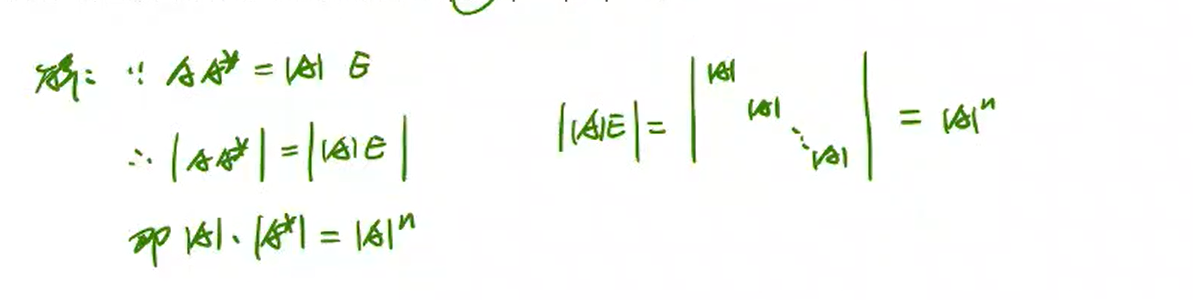 解: ∵ AA* = |A| E
∴ |AA*| = ||A|E|
即 |A|·|A*| = |A|ⁿ
||A|E| = | |A| |A| ⋱ |A| | = |A|ⁿ